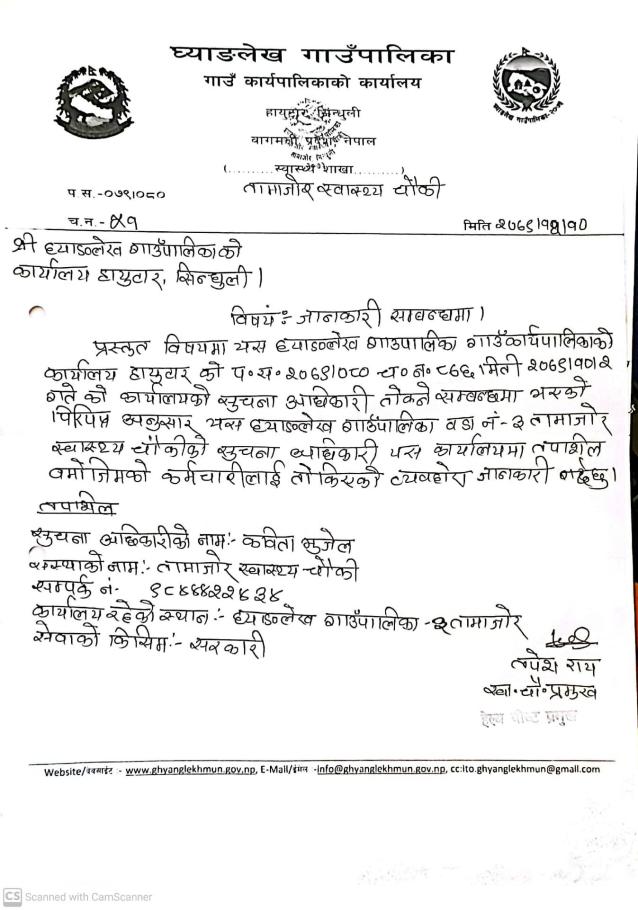 घ्याङलेख गाउँपालिका
गाउँ कार्यपालिकाको कार्यालय
हायुटार सिन्धुली
बागमती प्रदेश नेपाल
(............स्वास्थ्य शाखा............)
तामाजोर स्वास्थ्य चौकी
प.स.-०७९।०८०
च.न.-५१
मिति २०७९।१२।१०
श्री घ्याङलेख गाउँपालिकाको
कार्यालय हायुटार, सिन्धुली ।
विषय:- जानकारी सम्बन्धमा ।
प्रस्तुत विषयमा यस घ्याङलेख गाउपालिका गाउँकार्यपालिकाको
कार्यालय हायुटार को प.स. २०७९।०८० च.न. ८७६ मिती २०७९।१०।२
गते को कार्यालयको सुचना अधिकारी तोक्ने सम्बन्धमा भएको
अनुसार यस घ्याङलेख गाउँपालिका वडा नं-३ तामाजोर
स्वास्थ्य चौकीको सुचना अधिकारी यस कार्यालयमा तपाशिल
बमोजिमको कर्मचारीलाई तोकिएको व्यवहोरा जानकारी गर्दछु।
तपाशिल
सुचना अधिकारीको नाम:- कविता भुजेल
संस्थाको नाम:- तामाजोर स्वास्थ्य चौकी
सम्पर्क नं-
कार्यालय रहेको स्थान:- घ्याङलेख गाउँपालिका -३ तामाजोर
सेवाको किसिम:- सरकारी
तपेश राय
स्वा.चौ.प्रमुख
हेल्थ पोष्ट प्रमुख
Website/वेवसाईट :- www.ghyanglekhmun.gov.np, E-Mail/ईमेल -info@ghyanglekhmun.gov.np, cc:ito.ghyanglekhmun@gmail.com
CS Scanned with CamScanner